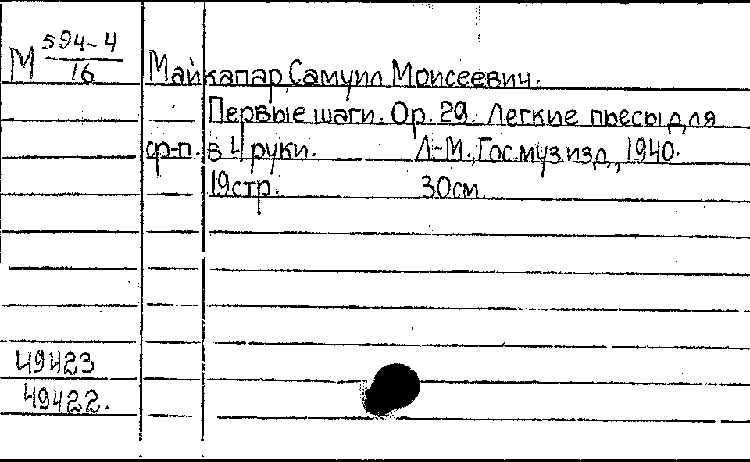 М 594-4/16
Майкапар, Самуил Моисеевич.
Первые шаги. Ор. 29. Легкие пьесы для
ф-п. в 4 руки. Л-М., Гос. муз изд., 1940.
19 стр. 30 см
49423
49422.